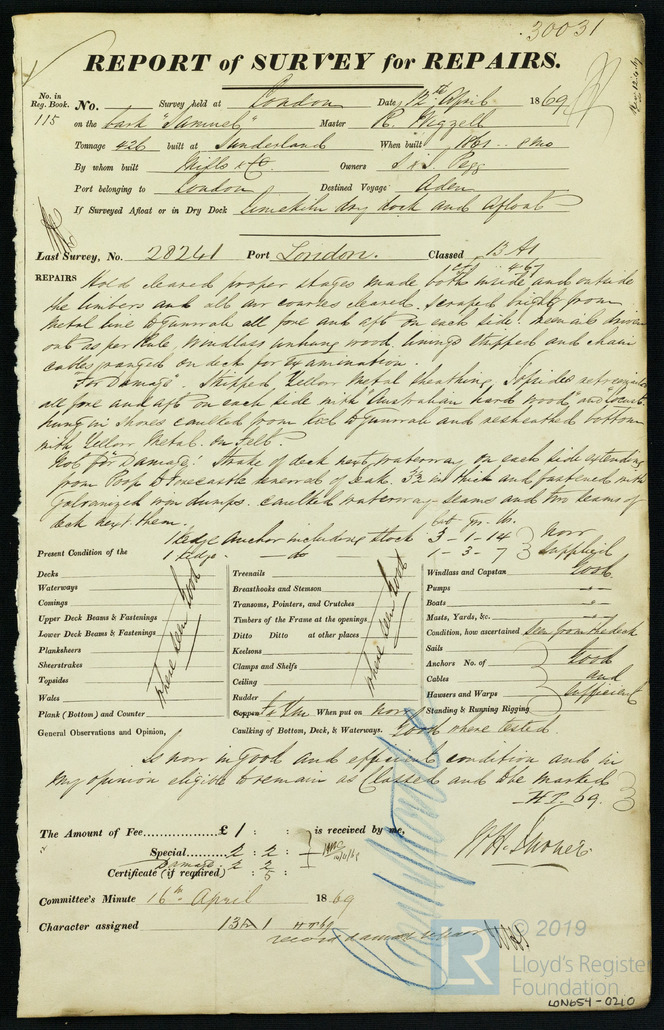 30031
REPORT of SURVEY for REPAIRS.
No. in Reg. Book. No. Survey held at London Date, 12th April 1869
115 on the bark "Samuel" Master R. Wiggell
Tonnage 426 built at Sunderland When built 1861 - 8 mo
By whom built Mills & Co. Owners J & J Pegg
Port belonging to London Destined Voyage Aden
If Surveyed Afloat or in Dry Dock Limekiln dry dock and afloat
Last Survey, No. 28241 Port London. Classed 13 A1
REPAIRS Hold cleared proper stages made both inside and outside
the limbers and all air courses cleared. Scraped bright from
metal line to gunwale all fore and aft on each side. treenails driven
out as per Rule, Windlass unhung wood linings stripped and chain
cables ranged on deck for Examination.
"For Damage". Stripped Yellow Metal sheathing, Topsides
all fore and aft on each side with "Australian hard wood" and
caulked from keel to gunwale and resheathed bottom
with Yellow Metal on Felt.
Not "For Damage". Strake of deck next waterway on each side extending
from Poop to Forecastle renewed of Oak 3½ in thick and fastened with
Galvanized iron dumps. caulked waterway seams and two seams of
deck next them.
cwt. qr. lb.
1 Kedge Anchor including stock 3-1-14 now
1 Kedge - do 1-3-7 supplied
Present Condition of the
Decks Treenails Windlass and Capstan Good
Waterways Breasthooks and Stemson Pumps "
Comings Transoms, Pointers, and Crutches Boats "
Upper Deck Beams & Fastenings Timbers of the Frame at the openings Masts, Yards, &c. "
Lower Deck Beams & Fastenings Ditto Ditto at other places Condition, how ascertained seen from the deck
Planksheers Keelsons Sails
Sheerstrakes Clamps and Shelfs Anchors No. of Good
Topsides Ceiling Cables and
Wales Rudder Hawsers and Warps sufficient
Plank (Bottom) and Counter Copper When put on now Standing & Running Rigging
where seen Good
where seen Good
General Observations and Opinion, Caulking of Bottom, Deck, & Waterways. Good where tested.
Is now in good and efficient condition and in
my opinion eligible to remain as Classed and be marked
69.
The Amount of Fee............... £ 1 : : is received by me,
Special........ 2 : 2 :
Damage 2 : 2
Certificate (if required) : 5 :
Committee's Minute 16th April 1869
Character assigned 13 A 1
record damage repair
© 2019
LR Lloyd's Register
Foundation
LON654-0210